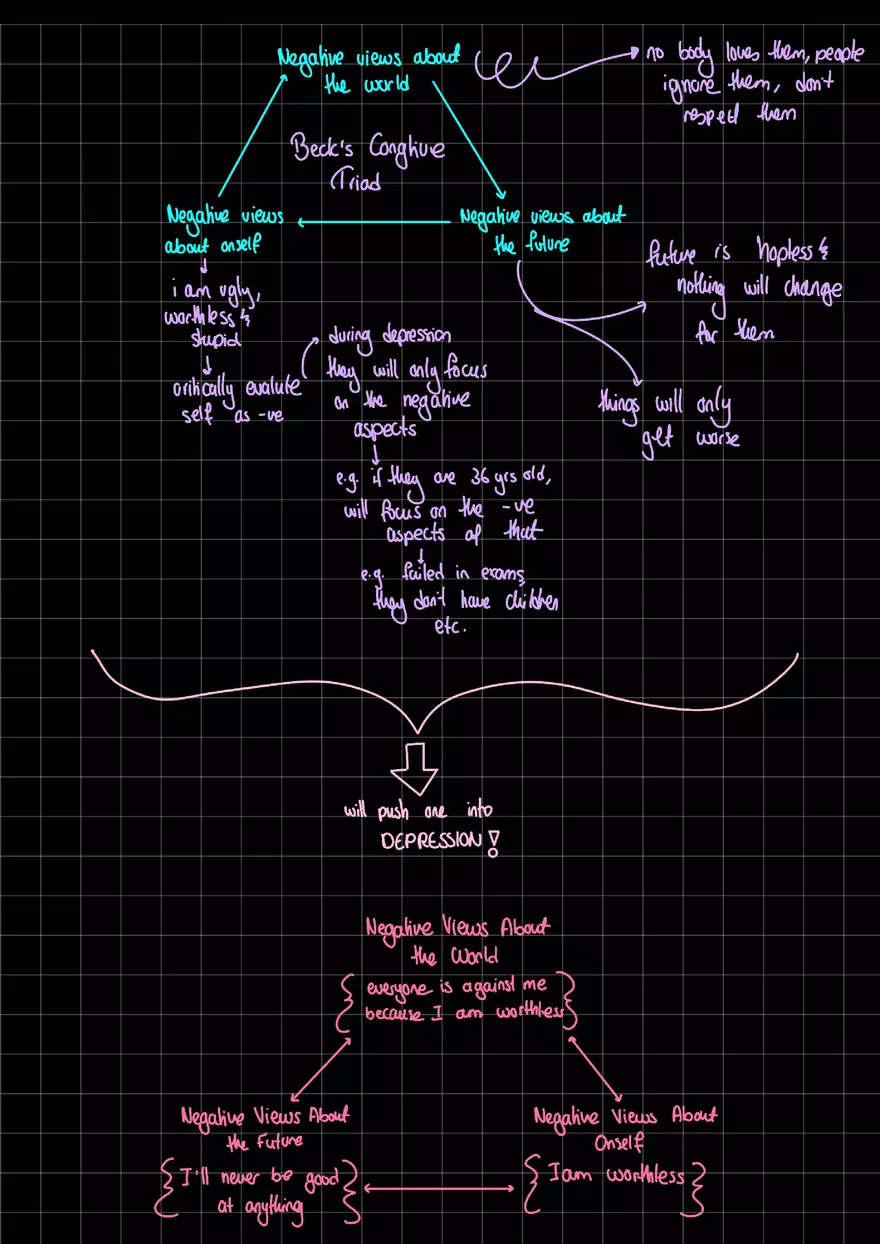 Negative views about
the world
no body loves them, people
ignore them, don't
respect them
Beck's Cognitive
Triad
Negative views
about onself
Negative views about
the future
i am ugly,
worthless &
stupid
critically evalute
self as -ve
during depression
they will only focus
on the negative
aspects
e.g. if they are 36 yrs old,
will focus on the -ve
aspects of that
e.g. failed in exams,
they don't have children
etc.
future is hopless &
nothing will change
for them
things will only
get worse
will push one into
DEPRESSION!
Negative Views About
the World
everyone is against me
because I am worthless
Negative Views About
the Future
I'll never be good
at anything
Negative Views About
Onself
I am worthless